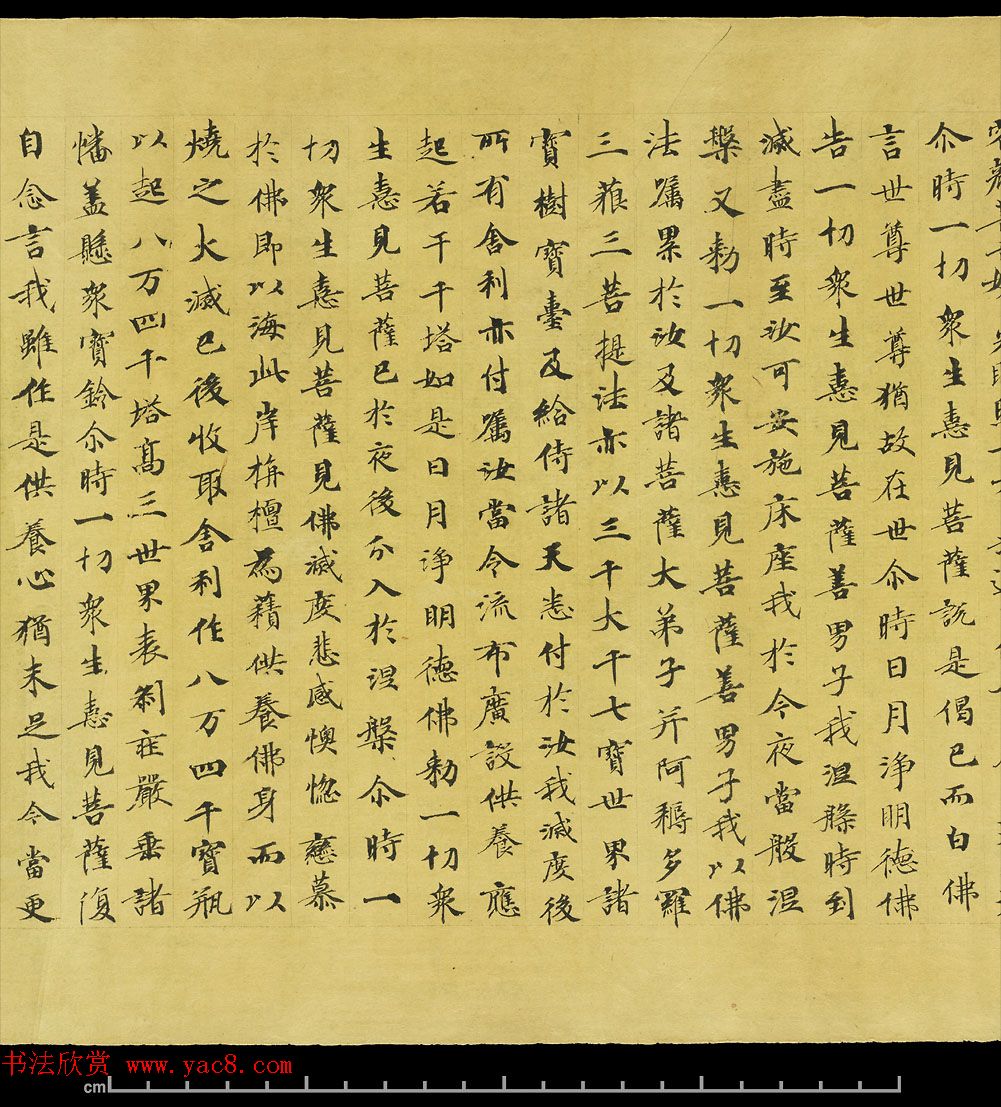 尒時一切衆生憙見菩薩説是偈已而白佛
言世尊世尊猶故在世尒時日月淨明德佛
告一切衆生憙見菩薩善男子我涅槃時到
滅盡時至汝可安施床座我於今夜當般涅
槃又勑一切衆生憙見菩薩善男子我以佛
法囑累於汝及諸菩薩大弟子并阿耨多羅
三藐三菩提法亦以三千大千七寶世界諸
寶樹寶臺及給侍諸天悉付於汝我滅度後
所有舍利亦付囑汝當令流布廣設供養應
起若干千塔如是日月淨明德佛勑一切衆
生憙見菩薩已於夜後分入於涅槃尒時一
切衆生憙見菩薩見佛滅度悲感懊惱戀慕
於佛即以海此岸栴檀為藉供養佛身而以
燒之火滅已後收取舍利作八万四千寶瓶
以起八万四千塔髙三世界表刹莊嚴垂諸
幡蓋懸衆寶鈴尒時一切衆生憙見菩薩復
自念言我雖作是供養心猶未足我今當更
书法欣赏 www.yac8.com
cm